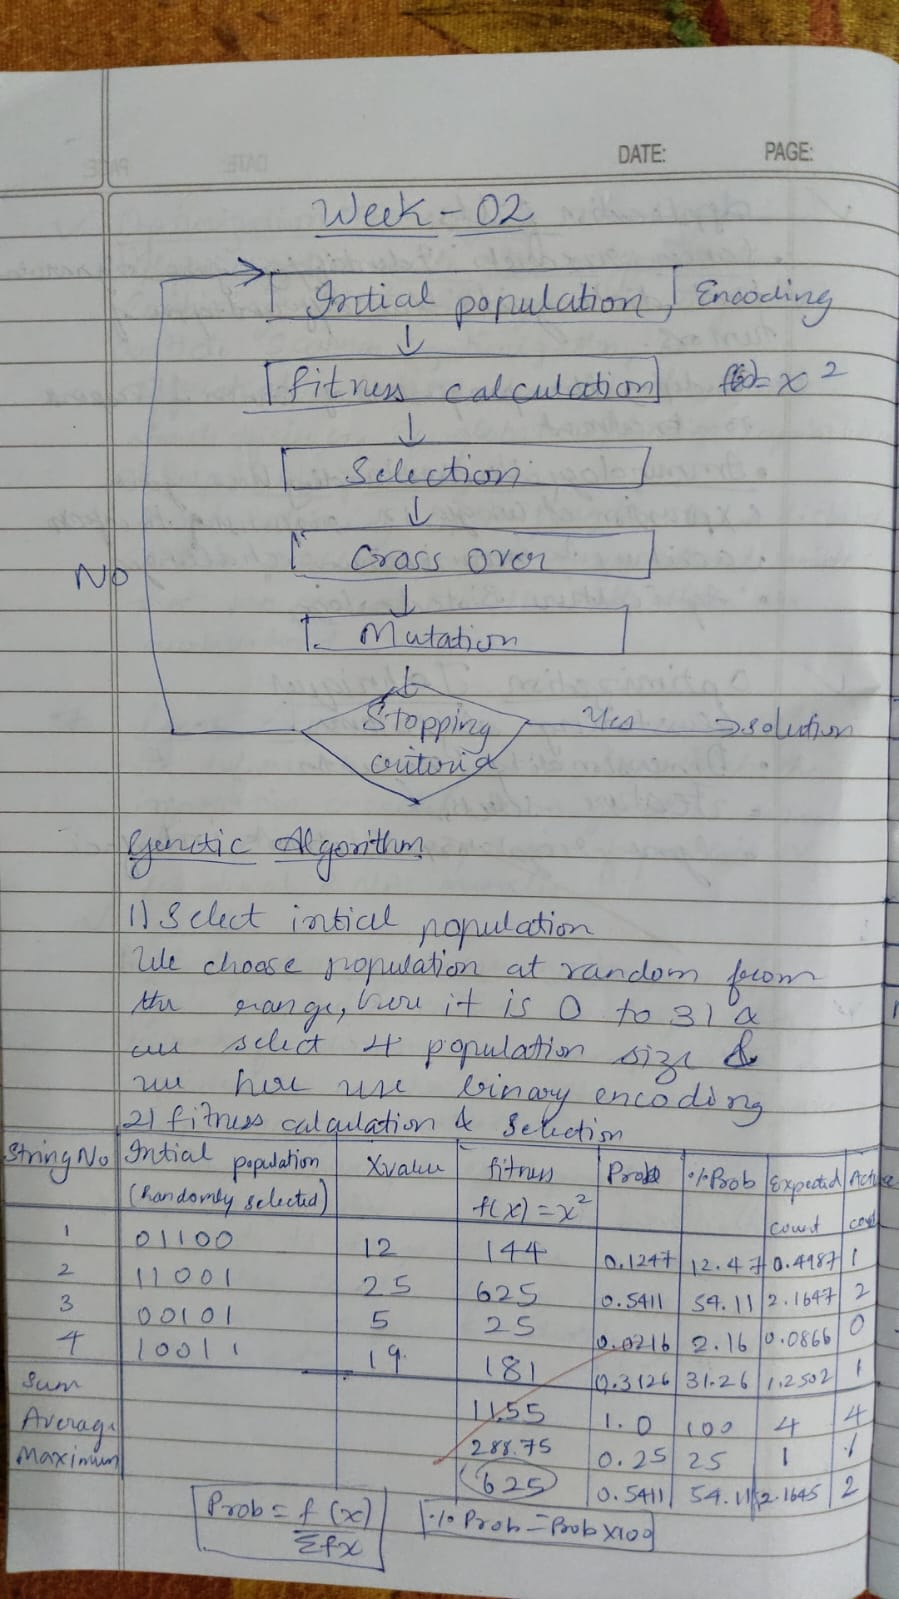 DATE: PAGE:
Week - 02
Intial population Encoding
fitness calculation f(x)= x²
Selection
Cross over
No
Mutation
Stopping Yes solution
criteria
Genetic Algorithm
1) Select intial population
We choose population at random from
the range, here it is 0 to 31 &
we select 4 population size &
we here use binary encoding
2) fitness calculation & Selection
String No Intial population X value fitness Prob % Prob Expected
(Randomly selected) f(x) = x² count
1 01100 12 144 0.1247 12.47 0.4987 1
2 11001 25 625 0.5411 54.11 2.1647 2
3 00101 5 25 0.0216 2.16 0.0866 0
4 10011 19 181 0.3126 31.26 1.2502 1
Sum 1155 1.0 100 4 4
Average 288.75 0.25 25 1 1
Maximum 625 0.5411 54.11 2.1645 2
Prob = f(x) % Prob = Prob x100
Σfx